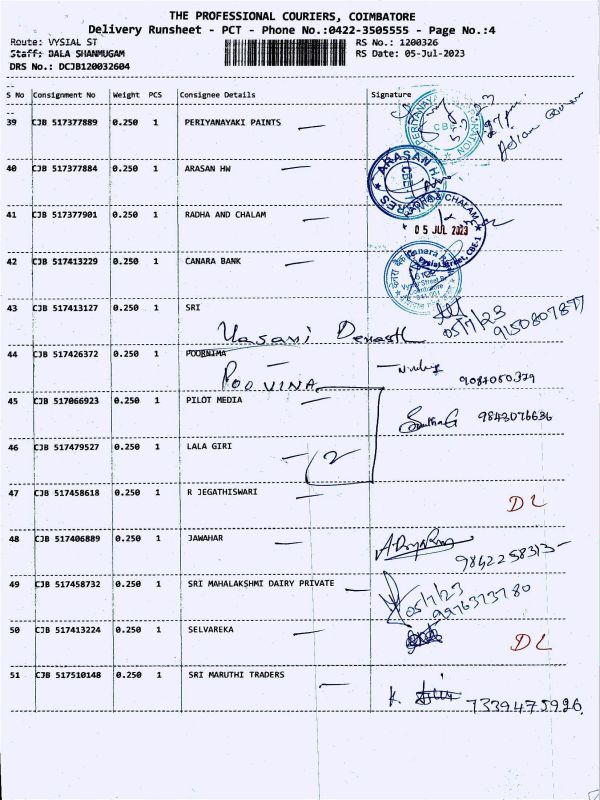 THE PROFESSIONAL COURIERS, COIMBATORE
Delivery Runsheet - PCT - Phone No.:0422-3505555 - Page No.:4
Route: VYSIAL ST RS No.: 1200326
Staff: BALA SHANMUGAM RS Date: 05-Jul-2023
DRS No.: DCJB120032604
S No Consignment No Weight PCS Consignee Details Signature
39 CJB 517377889 0.250 1 PERIYANAYAKI PAINTS
40 CJB 517377884 0.250 1 ARASAN HW
ARASAN H
CBE-1
41 CJB 517377901 0.250 1 RADHA AND CHALAM
CHALAM
05 JUL 2023
Vysial Street, CBE-1
42 CJB 517413229 0.250 1 CANARA BANK
43 CJB 517413127 0.250 1 SRI
05/7/23
9150807877
44 CJB 517426372 0.250 1 POORNIMA
POOVINA
9087050379
45 CJB 517066923 0.250 1 PILOT MEDIA
9843076636
46 CJB 517479527 0.250 1 LALA GIRI
2
47 CJB 517458618 0.250 1 R JEGATHISWARI
DL
48 CJB 517406889 0.250 1 JAWAHAR
9842258313
49 CJB 517458732 0.250 1 SRI MAHALAKSHMI DAIRY PRIVATE
05/7/23
50 CJB 517413224 0.250 1 SELVAREKA
DL
51 CJB 517510148 0.250 1 SRI MARUTHI TRADERS
K.
7339475926